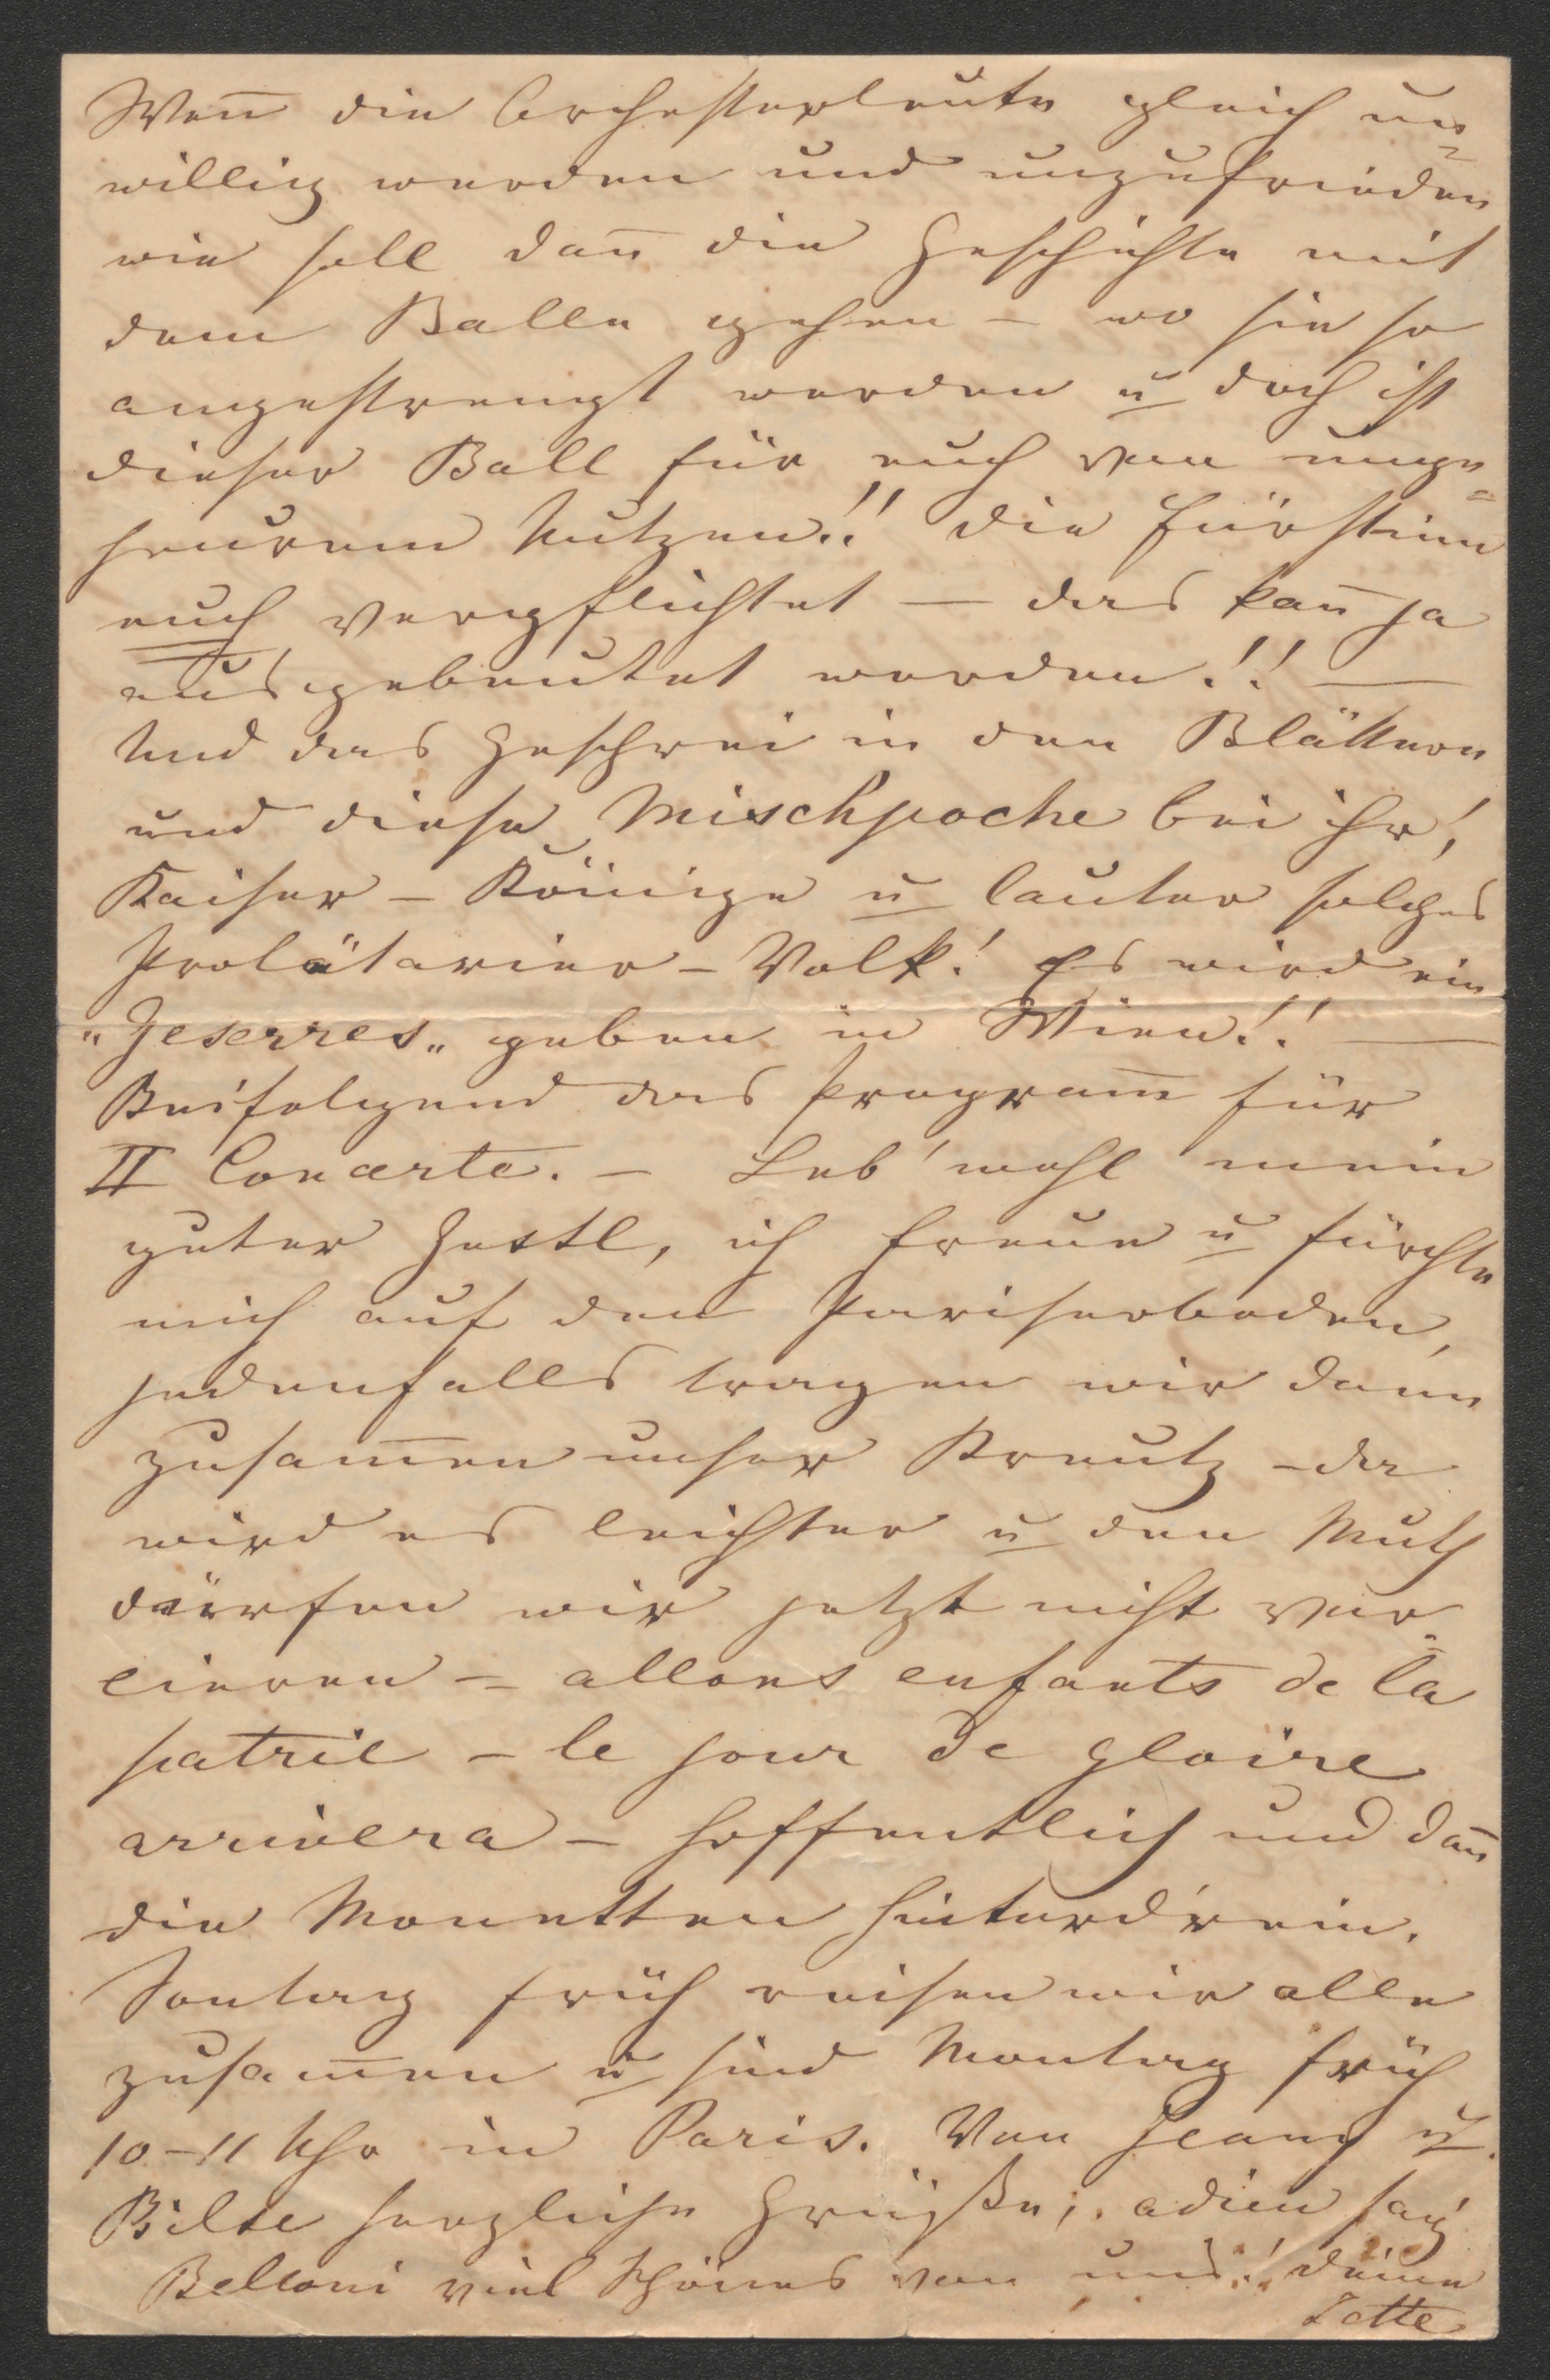 Wen̄ die Orchesterleute gleich un=
willig werden und unzufrieden
wie soll dan̄ die Geschichte mit
dem Balle gehen – wo sie so
angestrengt werden u doch ist
dieser Ball für euch von unge=
heurem Nutzen!! Die Fürstinn
euch verpflichtet – das kan̄ ja
ausgebeutet werden!! –
Und das Geschrei in den Blättern
und diese Mischpoche bei ihr!
Kaiser – Könige u lauter solches
Prolätarier – Volk! Es wird ein
„Geserres„ geben in Wien!! –
Beifolgend das Program̄ für
II Concerte. – Leb' wohl mein
guter Jettl, ich freue u fürchte
mich auf den Pariserboden,
jedenfalls tragen wir dann
zusam̄en unser Kreutz – da
wird es leichter u den Muth
dürfen wir jetzt nicht ver=
lieren – allons enfants de la
patrie – le jour de gloire
arrivera – hoffentlich und dan̄
die Monetten hinterd'rein.
Sontag früh reisen wir alle
zusam̄en u sind Montag früh
10–11 Uhr in Paris. Von Jeany u.
Bilse herzliche Grüße; adieu sag'
Belloni viel Schönes von uns! Deine
Jette